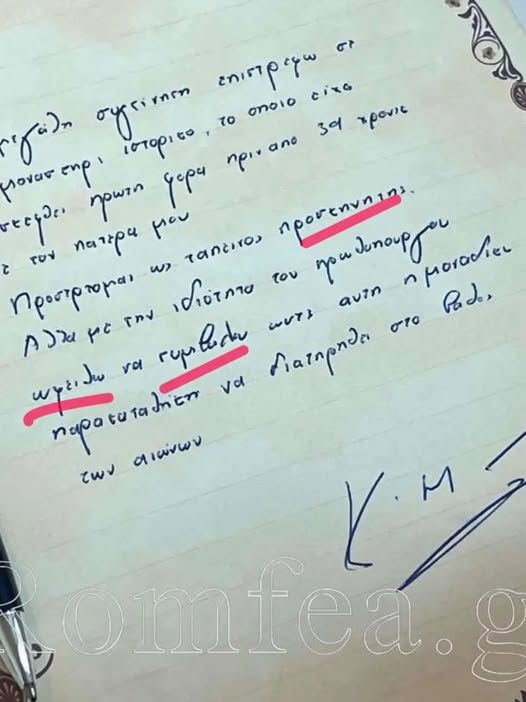 μεγάλη συγκίνηση επιστρέφω σε
μοναστηρι ιστορικο, το οποιο είχα
σκεφθει πρωτη φορα πριν απο 39 χρονια
ε τον πατερα μου
Προσερχομαι ως ταπεινος προσκηνητης.
Αλλα με την ιδιότητα του πρωθυπουργου
ωφειλω να συμβαλω ωστε αυτη η μοναδικη
παρακαταθηκη να διατηρηθει στο βαθος
των αιωνων
Κ. Μ
Romfea.g